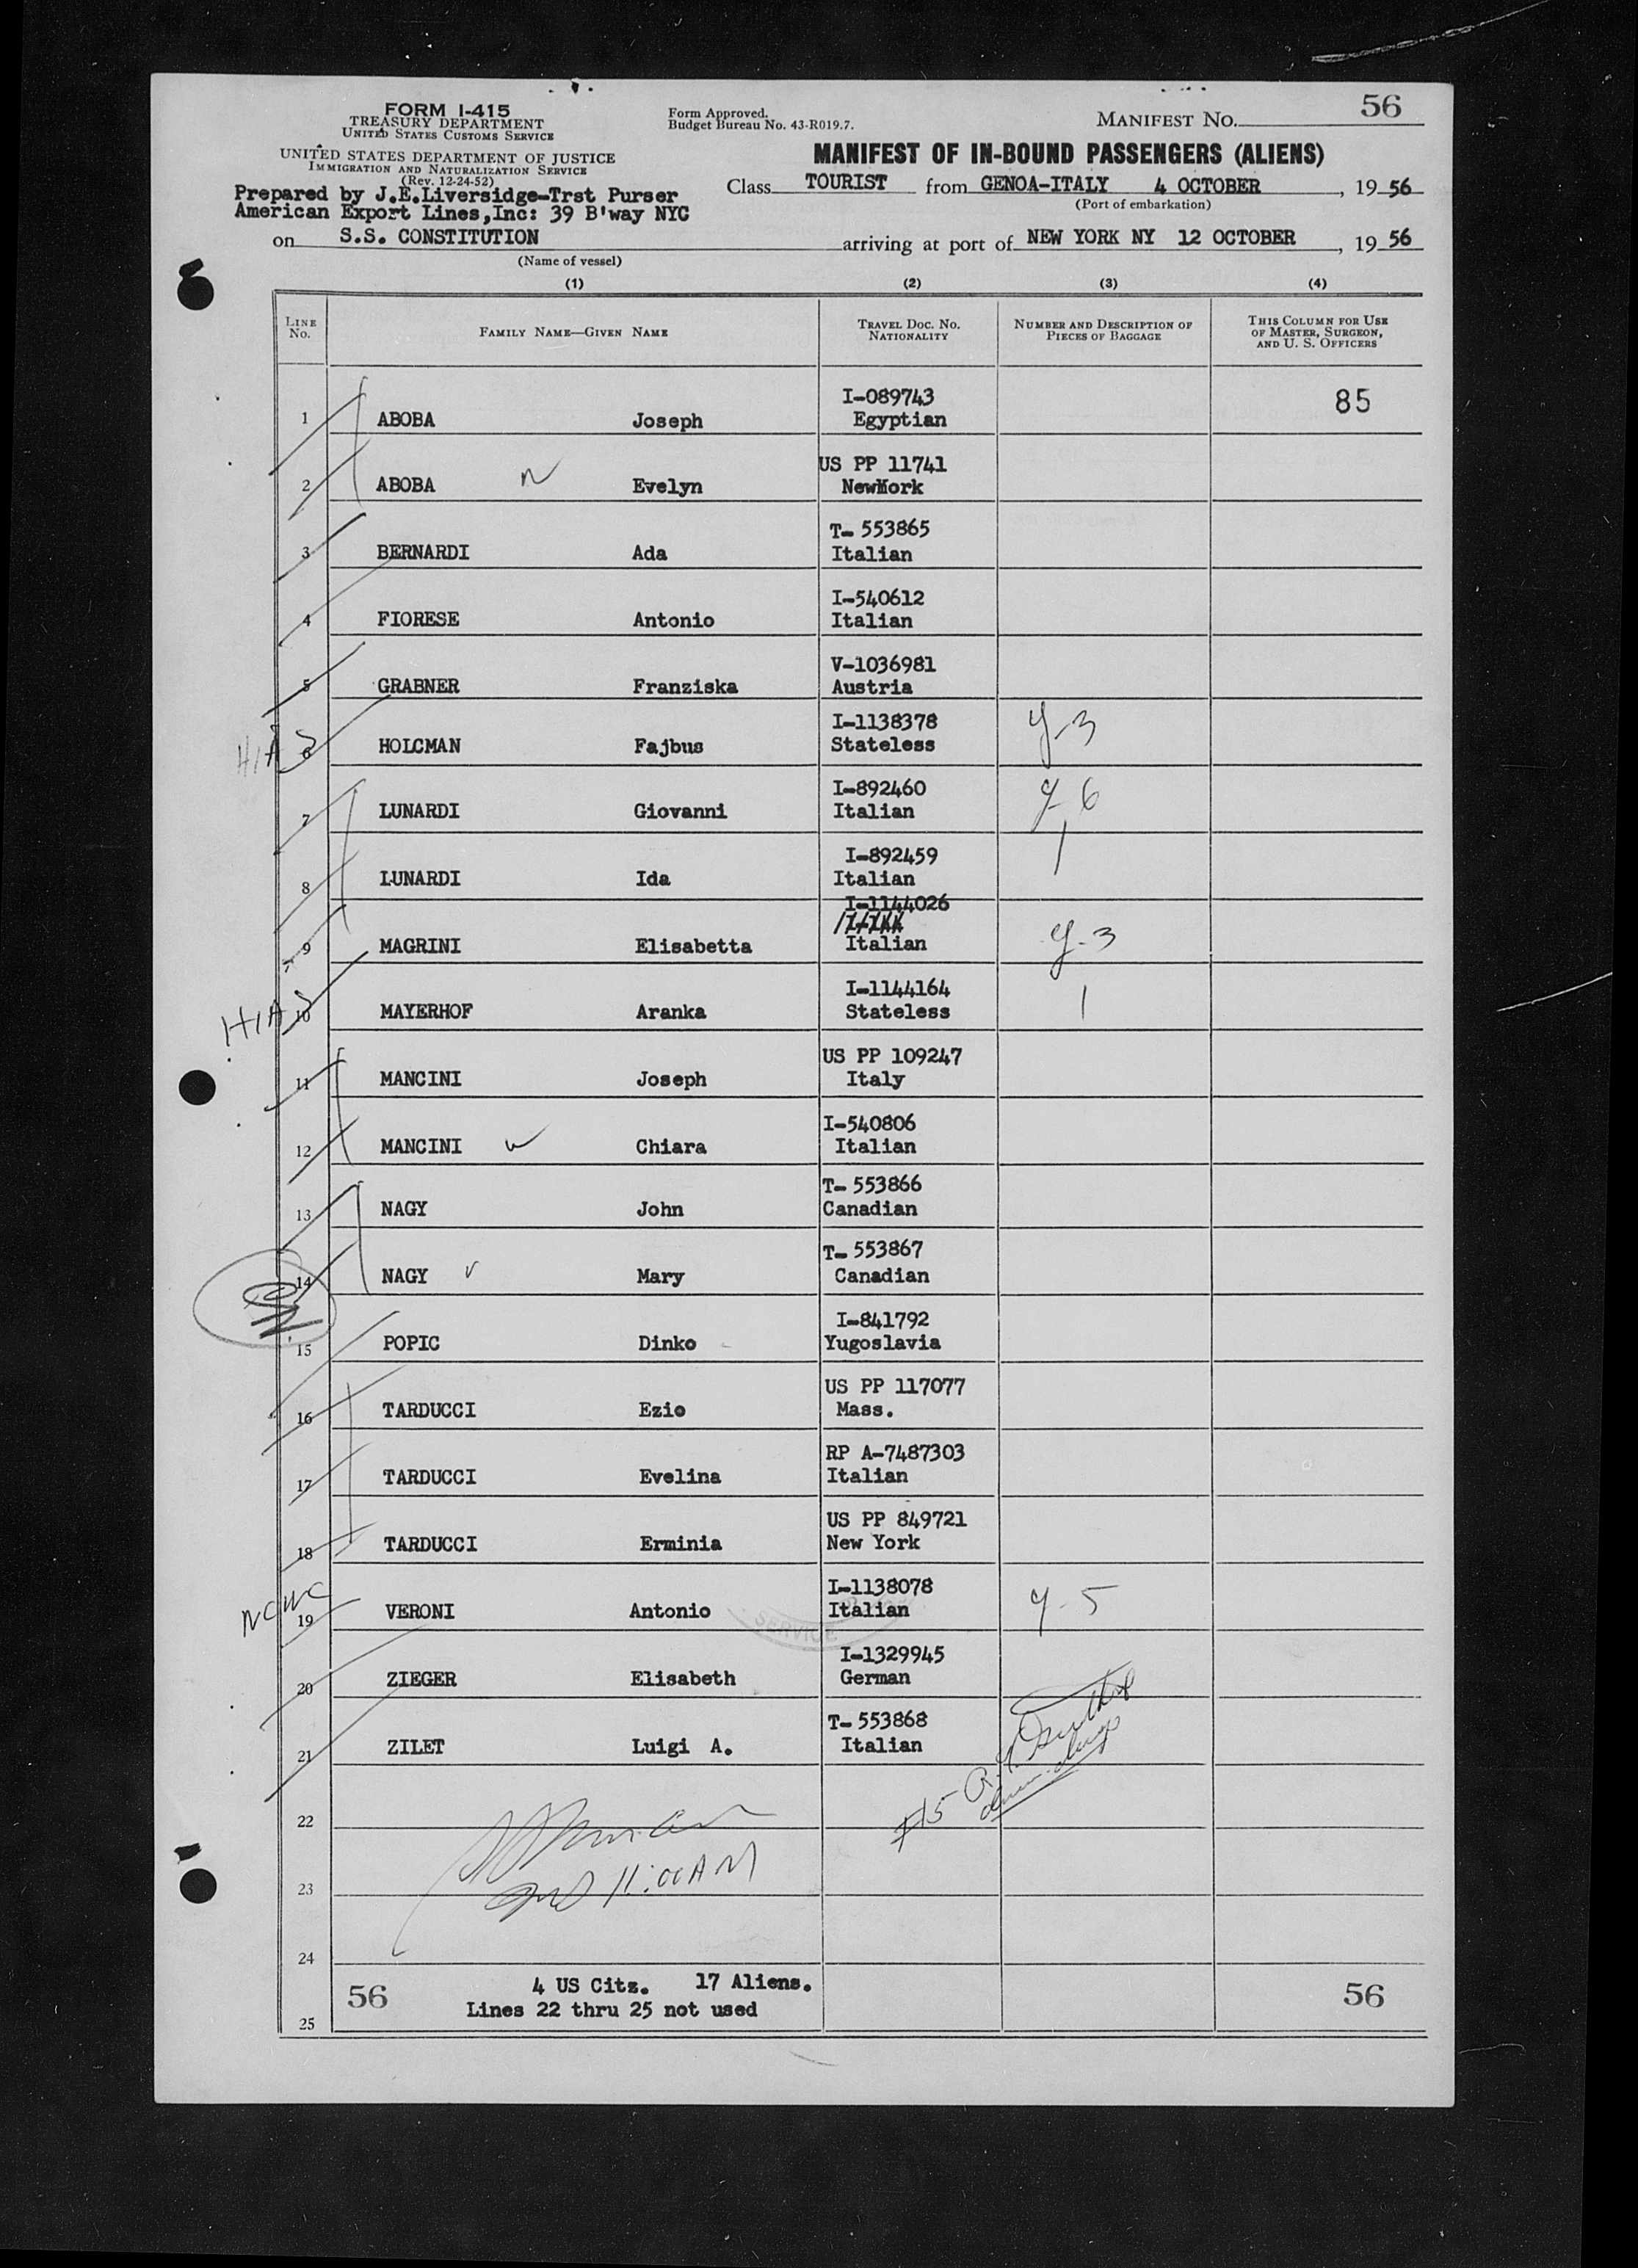 56
FORM I-415
TREASURY DEPARTMENT
UNITED STATES CUSTOMS SERVICE
Form Approved.
Budget Bureau No. 43-R019.7.
MANIFEST NO.
UNITED STATES DEPARTMENT OF JUSTICE
IMMIGRATION AND NATURALIZATION SERVICE
(Rev. 12-24-52)
MANIFEST OF IN-BOUND PASSENGERS (ALIENS)
Prepared by J.E.Liversidge-Trst Purser
American Export Lines,Inc: 39 B'way NYC
Class TOURIST from GENOA-ITALY 4 OCTOBER, 19 56
(Port of embarkation)
on S.S. CONSTITUTION arriving at port of NEW YORK NY 12 OCTOBER, 19 56
(Name of vessel)
(1) (2) (3) (4)
LINE No. FAMILY NAME—GIVEN NAME TRAVEL DOC. NO. NATIONALITY NUMBER AND DESCRIPTION OF PIECES OF BAGGAGE THIS COLUMN FOR USE OF MASTER, SURGEON, AND U. S. OFFICERS
I-089743 85
1 ABOBA Joseph Egyptian
US PP 11741
2 ABOBA Evelyn NewMork
T- 553865
3 BERNARDI Ada Italian
I-540612
4 FIORESE Antonio Italian
V-1036981
5 GRABNER Franziska Austria
I-1138378
HIAS 6 HOLCMAN Fajbus Stateless y-3
I-892460
7 LUNARDI Giovanni Italian y-6
I-892459
8 LUNARDI Ida Italian
I-1144026
9 MAGRINI Elisabetta Italian y-3
I-1144164
HIAS 10 MAYERHOF Aranka Stateless 1
US PP 109247
11 MANCINI Joseph Italy
I-540806
12 MANCINI Chiara Italian
T- 553866
13 NAGY John Canadian
T- 553867
14 NAGY Mary Canadian
I-841792
15 POPIC Dinko Yugoslavia
US PP 117077
16 TARDUCCI Ezio Mass.
RP A-7487303
17 TARDUCCI Evelina Italian
US PP 849721
18 TARDUCCI Erminia New York
I-1138078
NCWC 19 VERONI Antonio Italian y-5
SERVICE
I-1329945
20 ZIEGER Elisabeth German
T- 553868
21 ZILET Luigi A. Italian
#15
22
11:00AM
23
24
56 4 US Citz. 17 Aliens. 56
Lines 22 thru 25 not used
25